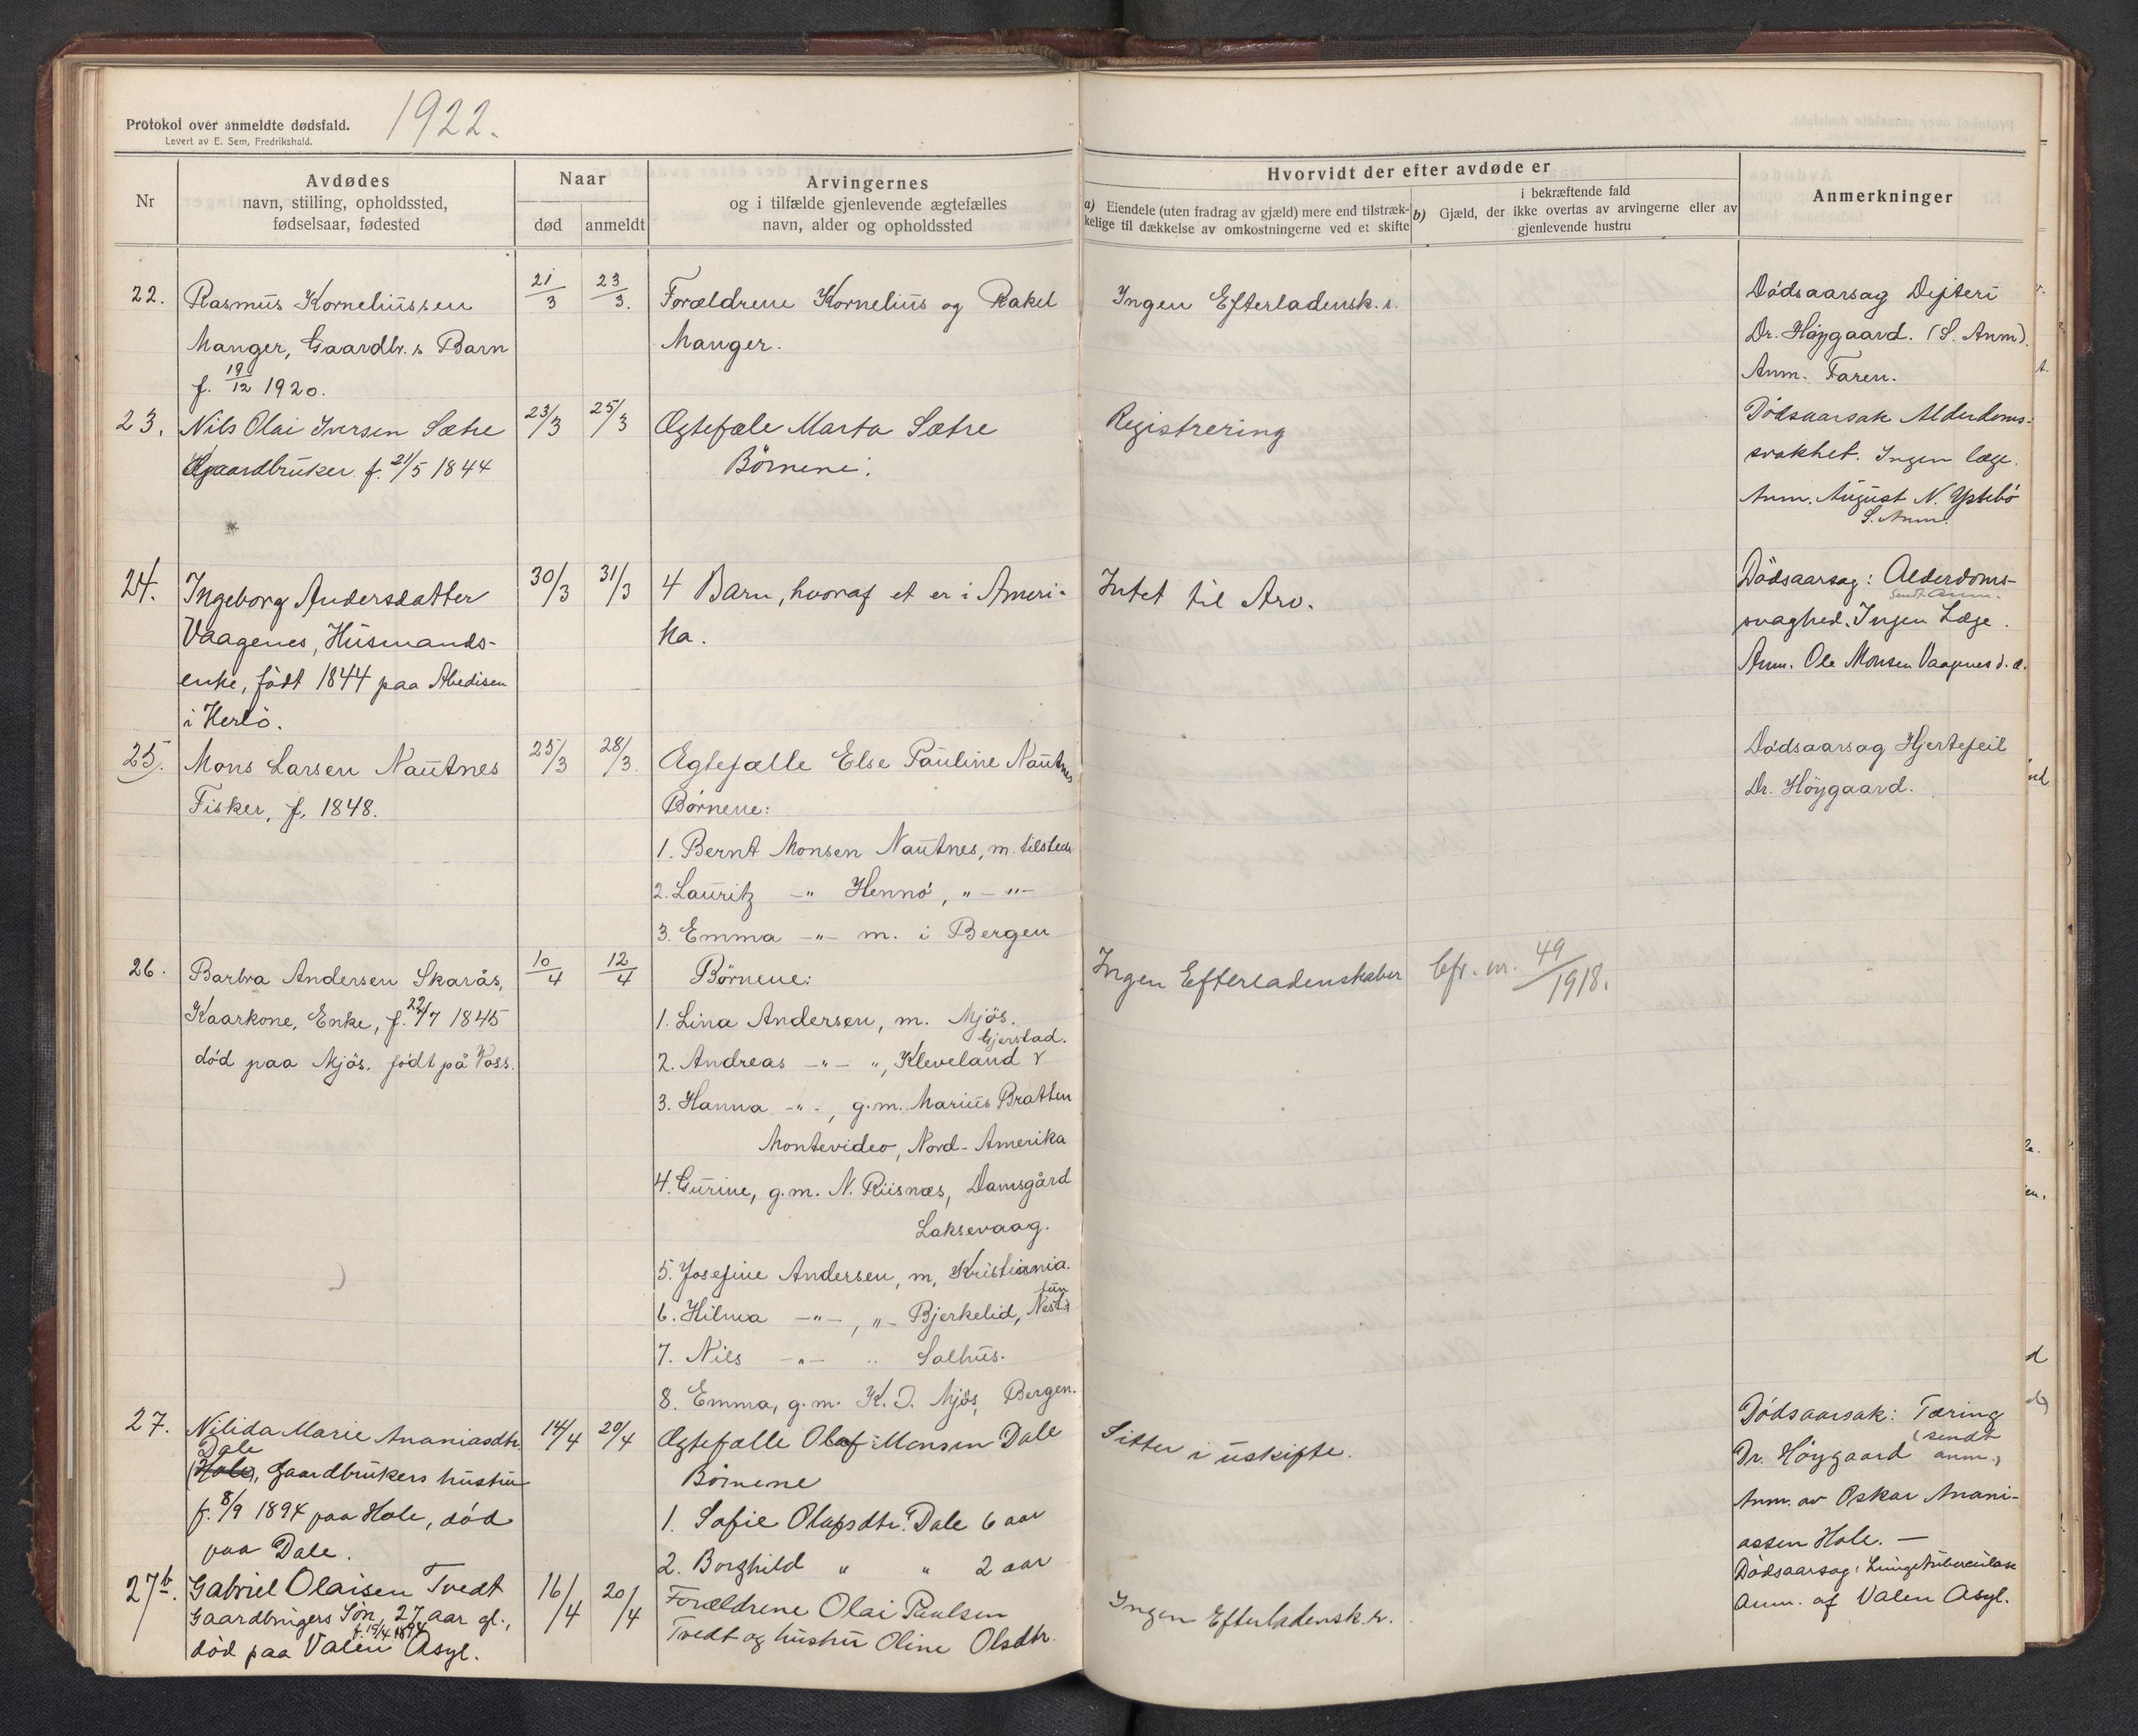 Protokol over anmeldte dødsfald.
Levert av E. Sem, Fredrikshald.
1922.
Nr
Avdødes
navn, stilling, opholdssted,
fødselsaar, fødested
Naar
død
anmeldt
Arvingernes
og i tilfælde gjenlevende ægtefælles
navn, alder og opholdssted
Hvorvidt der efter avdøde er
a) Eiendele (uten fradrag av gjæld) mere end tilstræk-
kelige til dækkelse av omkostningerne ved et skifte
i bekræftende fald
b) Gjæld, der ikke overtas av arvingerne eller av
gjenlevende hustru
Anmerkninger
22.
Rasmus Korneliussen
Manger, Gaardbr.s Barn
f. 19/12 1920.
21/3
23/3.
Forældrene Kornelius og Rakel
Manger.
Ingen Efterladensk.r.
Dødsaarsag Difteri
Dr. Høygaard. (S. Anm).
Anm. Faren.
23.
Nils Olai Iversen Sætre
Gaardbruker f. 21/5 1844
23/3
25/3
Ægtefæle Marta Sætre
Børnene.
Registrering
Dødsaarsak Alderdoms-
svakhet. Ingen læge.
Anm. August N. Ystebø
S. Anm.
24.
Ingeborg Andersdatter
Vaagenes, Husmands-
enke, født 1844 paa Abedisen
i Herlø.
30/3
31/3
4 Barn, hvoraf et er i Ameri-
ka.
Intet til Arv.
Dødsaarsag: Alderdoms-
Sendt Anm.
svaghed. Ingen Læge.
Anm. Ole Monsen Vaagenes d. æ.
25.
Mons Larsen Nautnes
Fisker, f. 1848.
25/3
28/3.
Ægtefælle Else Pauline Nautnes
Børnene:
1. Bernt Monsen Nautnes, m. tilstede
2. Lauritz -"- Hennø, " - "-
3. Emma -"- m. i Bergen
Dødsaarsag Hjertefeil
Dr. Høygaard.
26.
Barbra Andersen Skarås,
Kaarkone, Enke, f. 22/7 1845
død paa Mjøs. født på Voss.
10/4
12/4
Børnene:
1. Lina Andersen, m. Mjøs.
Gjerstad.
2. Andreas -"- ", Kleveland
3. Hanna -"-, g.m. Marius Bratten
Montevideo, Nord-Amerika
4. Gurine, g.m. N. Riisnæs, Damsgård
Laksevaag.
5. Josefine Andersen, m, Kristiania.
6. Hilma -"-, "- Bjerkelid, Nesttun
7. Nils -"- " Salhus.
8. Emma, g.m. K. J. Mjøs, Bergen.
Ingen Efterladenskaber
Cfr. nr. 49/1918.
27.
Nilida Marie Ananiasdtr.
Dale
(Hole), Gaardbrukers hustru
f. 8/9 1894 paa Hole, død
paa Dale.
14/4
20/4
Ægtefælle Olaf Monsen Dale
Børnene
1. Sofie Olafsdtr. Dale 6 aar
2. Borghild " " 2 aar
Sitter i uskifte.
Dødsaarsak: Tæring
(sendt
Dr. Høygaard anm.)
Anm. av Oskar Anani-
assen Hole. —
27b.
Gabriel Olaisen Tvedt
Gaardbrugers Søn, 27 aar gl.,
f. 19/4 1894
død paa Valen Asyl.
16/4
20/4
Forældrene Olai Paulsen
Tvedt og hustru Oline Olsdtr.
Ingen Efterladensk.r.
Dødsaarsag: Lungetuberculose
Anm. af Valen Asyl.